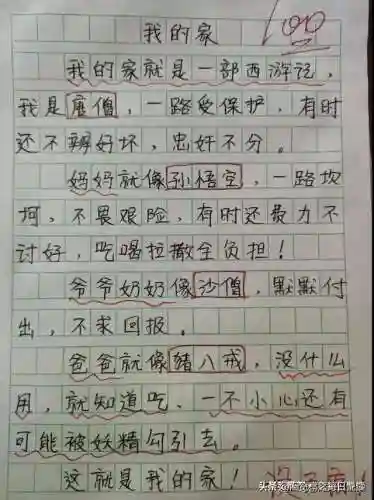 我的家
100
我的家就是一部西游记，
我是唐僧，一路受保护，有时
还不辨好坏，忠奸不分。
妈妈就像孙悟空，一路坎
坷，不畏艰险，有时还费力不
讨好，吃喝拉撒全负担！
爷爷奶奶像沙僧，默默付
出，不求回报。
爸爸就像猪八戒，没什么
用，就知道吃、一不小心还有
可能被妖精勾引去。
这就是我的家！